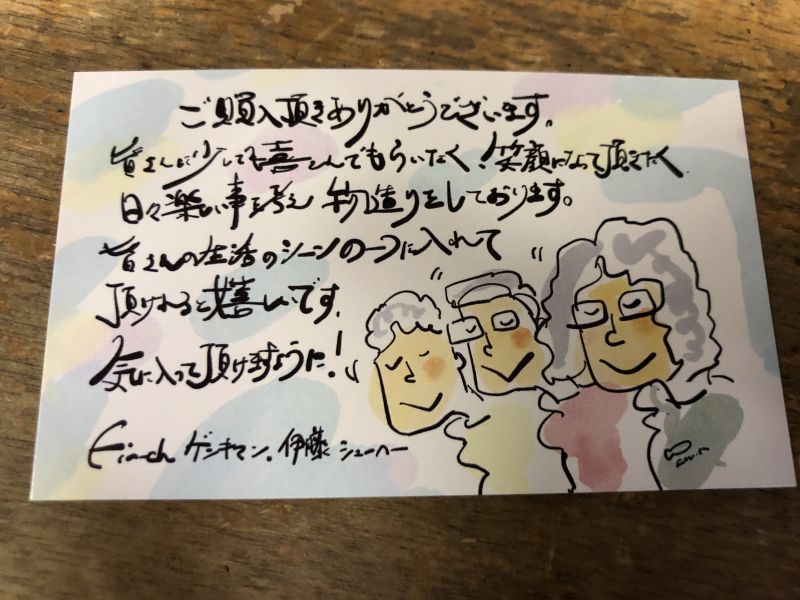 ご購入頂きありがとうございます。
皆さんに少しでも喜んでもらいたく、笑顔になって頂きたく
日々楽しい事を考え 物造りをしております。
皆さんの生活のシーンの一つに入れて
頂けれると嬉しいです。
気に入って頂けますように!
ゲンキマン。伊藤 シューハー